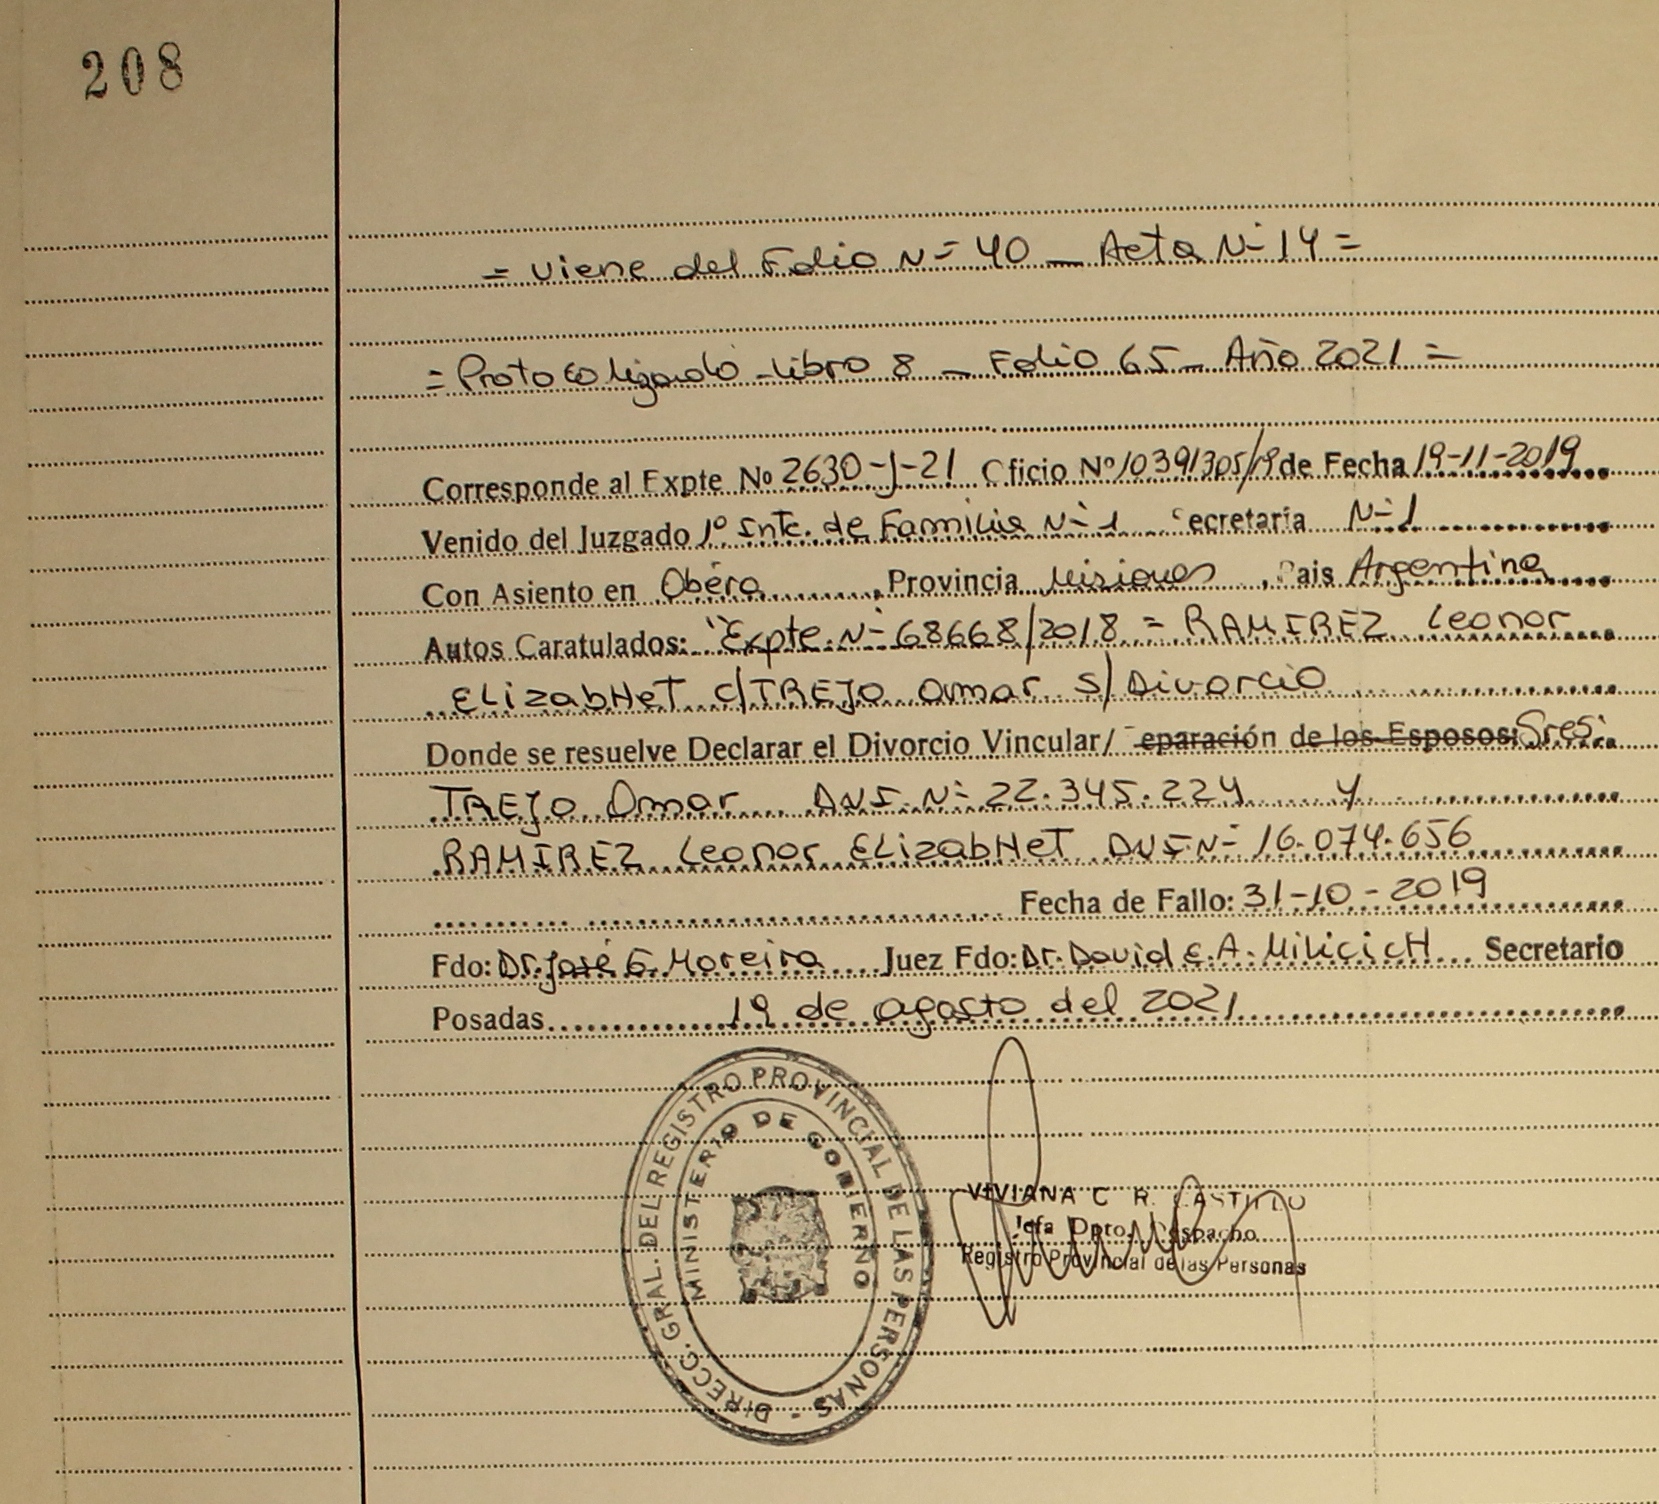 208
= viene del Folio N= 40 _ Acta N= 14 =
= Protocolizado _ Libro 8 _ Folio 65 _ Año 2021 =
Corresponde al Expte Nº 2630-J-21 Oficio Nº 10391305/19 de Fecha 19-11-2019
Venido del Juzgado 1º Intc. de Familia N= 1 Secretaría N= 1
Con Asiento en Oberá, Provincia Misiones, Pais Argentina
Autos Caratulados: "Expte. N= 68668/2018 = RAMIREZ Leonor
ELizabHeT c/TREJO Omar s/ Divorcio
Donde se resuelve Declarar el Divorcio Vincular/ eparación de los Esposos: Sres:
TREJO Omar DNI. N= 22.345.224 y
RAMIREZ Leonor ELizabHeT DNI N= 16.074.656
Fecha de Fallo: 31-10-2019
Fdo: Dr. José G. Moreira Juez Fdo: Dr. David E. A. MiLicicH Secretario
Posadas 19 de agosto del 2021
DIRECC. GRAL. DEL REGISTRO PROVINCIAL DE LAS PERSONAS -
MINISTERIO DE GOBIERNO
VIVIANA C R. CASTILLO
Jefa Dpto. Despacho
Registro Provincial de las Personas